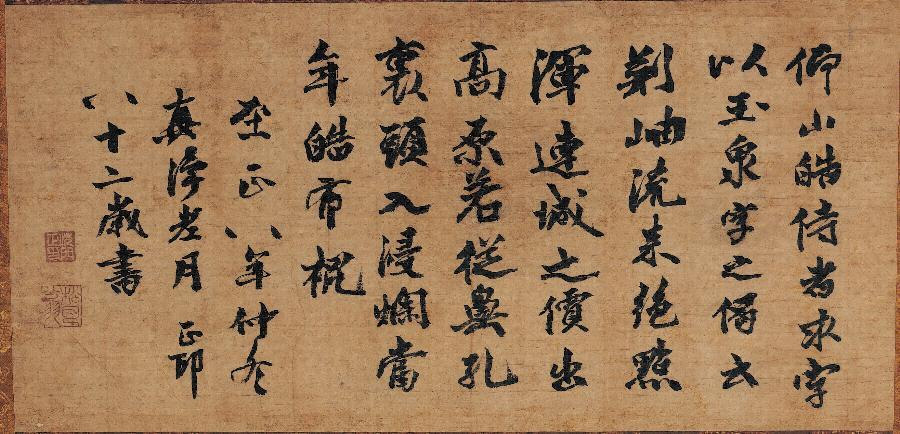 仰山皓侍者求字
以玉泉字之偈云
荊岫流來絕點
渾連城之價出
高原若從鼻孔
裏頭入浸爛當
年皓布裩
至正八年仲冬
真浄老月正印
八十二歲書